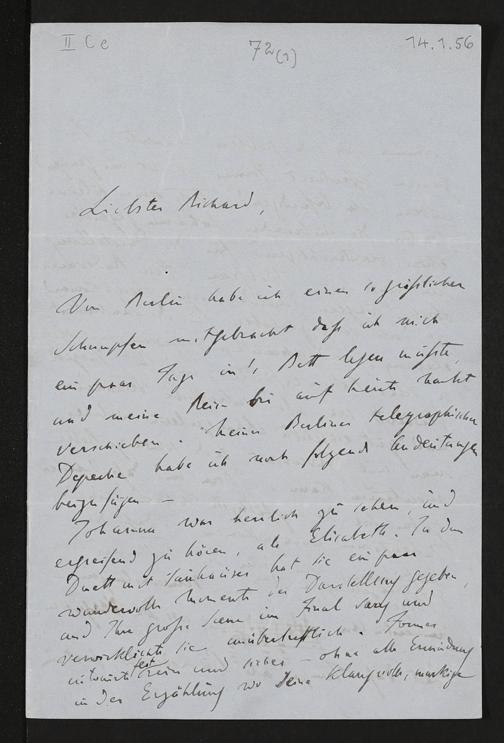 II Ce
72(1)
14.1.56
Liebster Richard,
Von Berlin habe ich einen so gräßlichen
Schnupfen mitgebracht daß ich mich
ein paar Tage in's Bett legen müßte,
und meine Reise bis auf heute Nacht
verschieben. Meiner Berliner telegraphischen
Depesche habe ich noch folgende Andeutungen
beizufügen —
Johanna war herrlich zu sehen, und
ergreifend zu hören, als Elisabeth. In dem
Duett mit Tanhäuser hat sie ein paar
wundervolle Momente der Darstellung gegeben,
und Ihre große Scene im Final sang und
verwirklichte sie unübertrefflich. Formes
intonirte fest rein und sicher — ohne alle Ermüdung
in der Erzählung wo seine klangvolle, markige